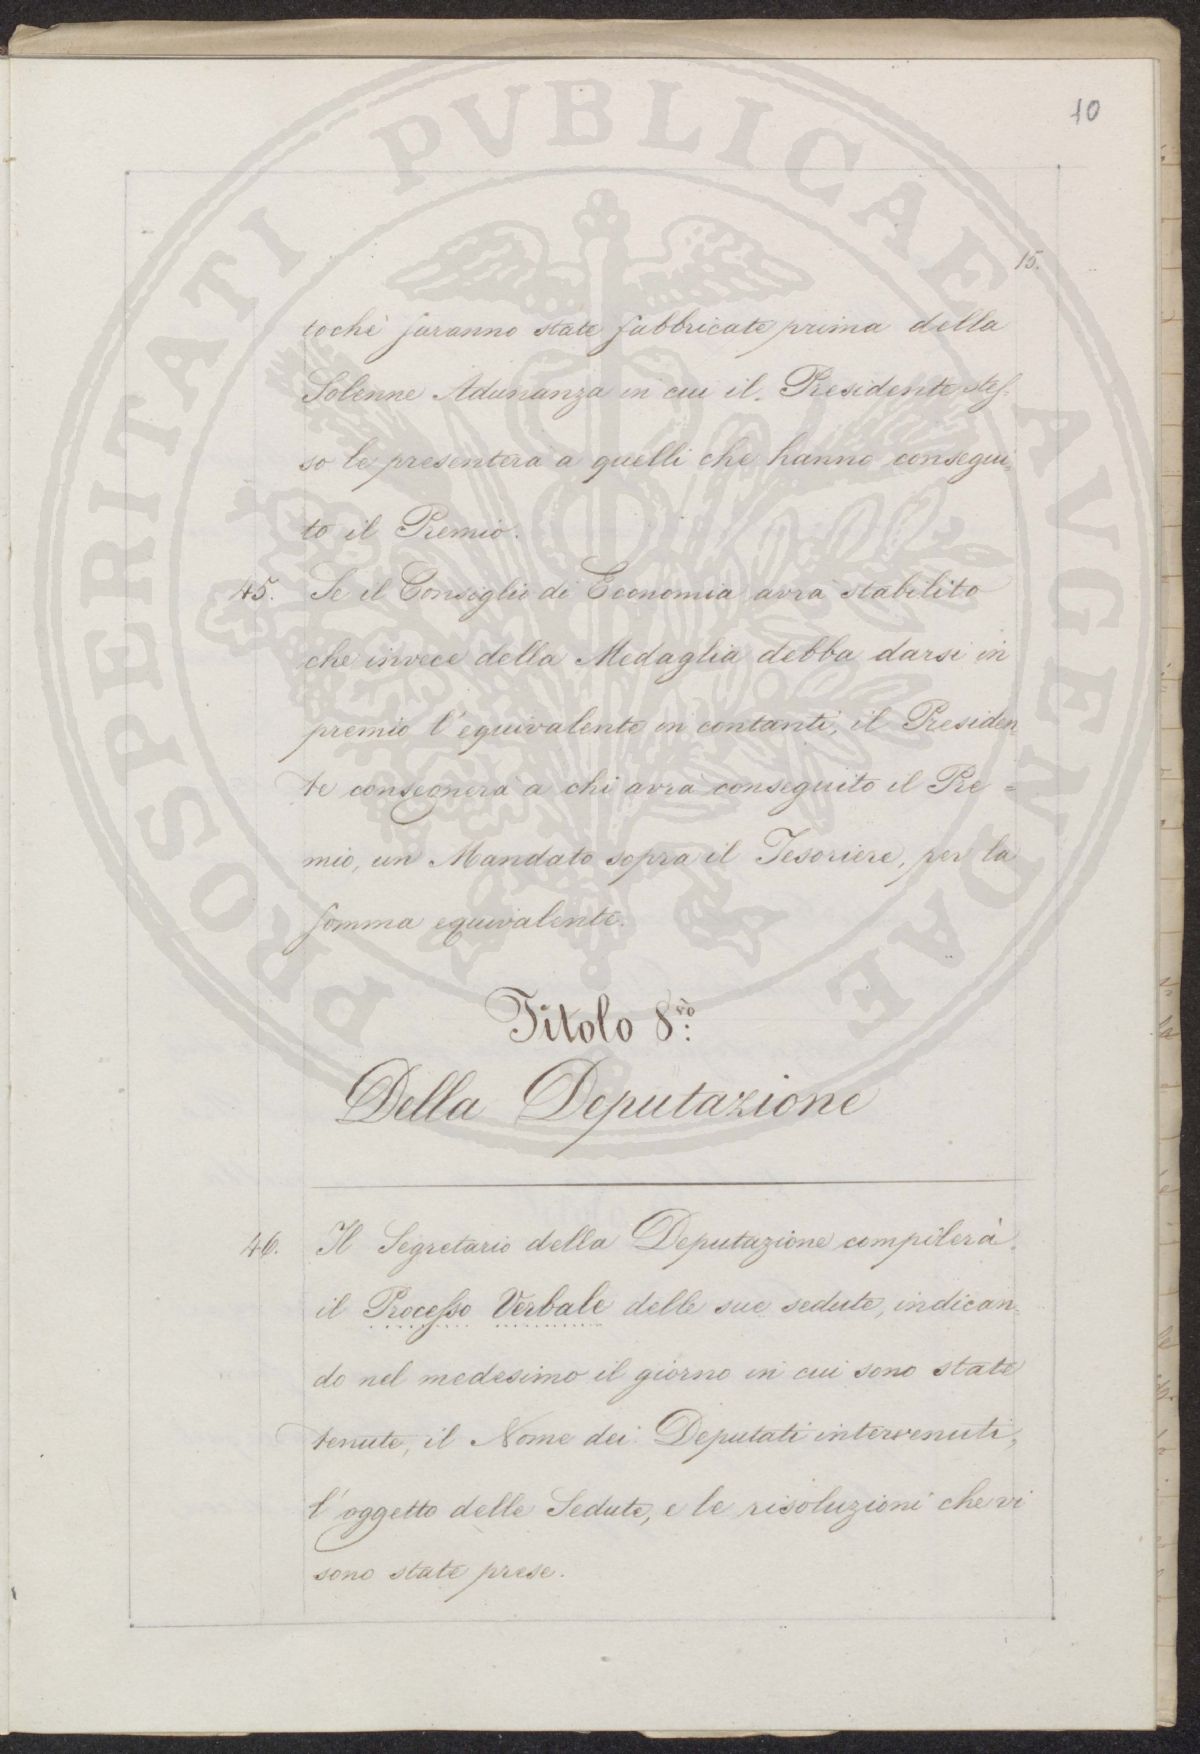 10
15.
toche saranno state fabbricate prima della
Solenne Adunanza in cui il Presidente stes-
so le presenterà a quelli che hanno consegui-
to il Premio.
45. Se il Consiglio di Economia avrà stabilito
che invece della Medaglia debba darsi in
premio l'equivalente in contanti, il Presiden
te consegnerà a chi avrà conseguito il Pre=
mio, un Mandato sopra il Tesoriere, per la
somma equivalente.
Titolo 8.vo
Della Deputazione
46. Il Segretario della Deputazione compilerà
il Processo Verbale delle sue sedute, indican-
do nel medesimo il giorno in cui sono state
tenute, il Nome dei Deputati intervenuti,
l'oggetto delle Sedute, e le risoluzioni che vi
sono state prese.
PROSPERITATI PVBLICAE AVGENDAE